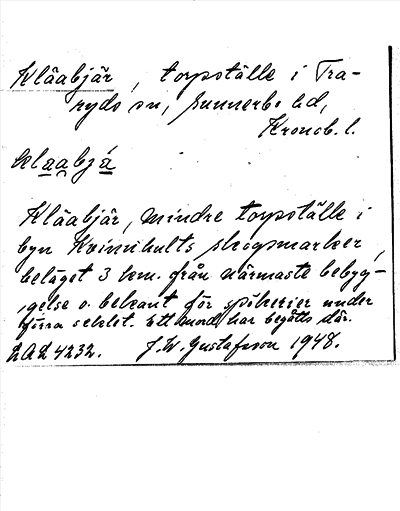 Klåabjär, torpställe i Tra-
ryds sn, Sunnerbo hd,
Kronob. l.
klaabjá
Klåabjär, mindre torpställe i
byn Kvinnhults skogsmarker,
beläget 3 km. från närmaste bebyg-
gelse o. bekant för spökerier under
förra seklet. Ett mord har begåtts där.
LAL 4232. J. W. Gustafsson 1948.